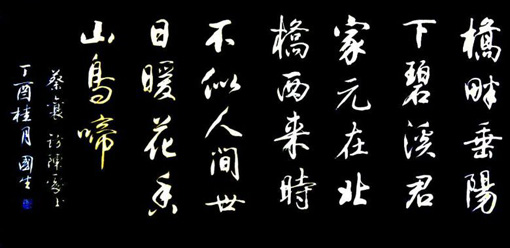 橋畔垂陽
下碧溪君
家元在北
橋西来時
不似人间世
日暖花香
山鳥啼
蔡襄 訪陳處士
丁酉桂月國生